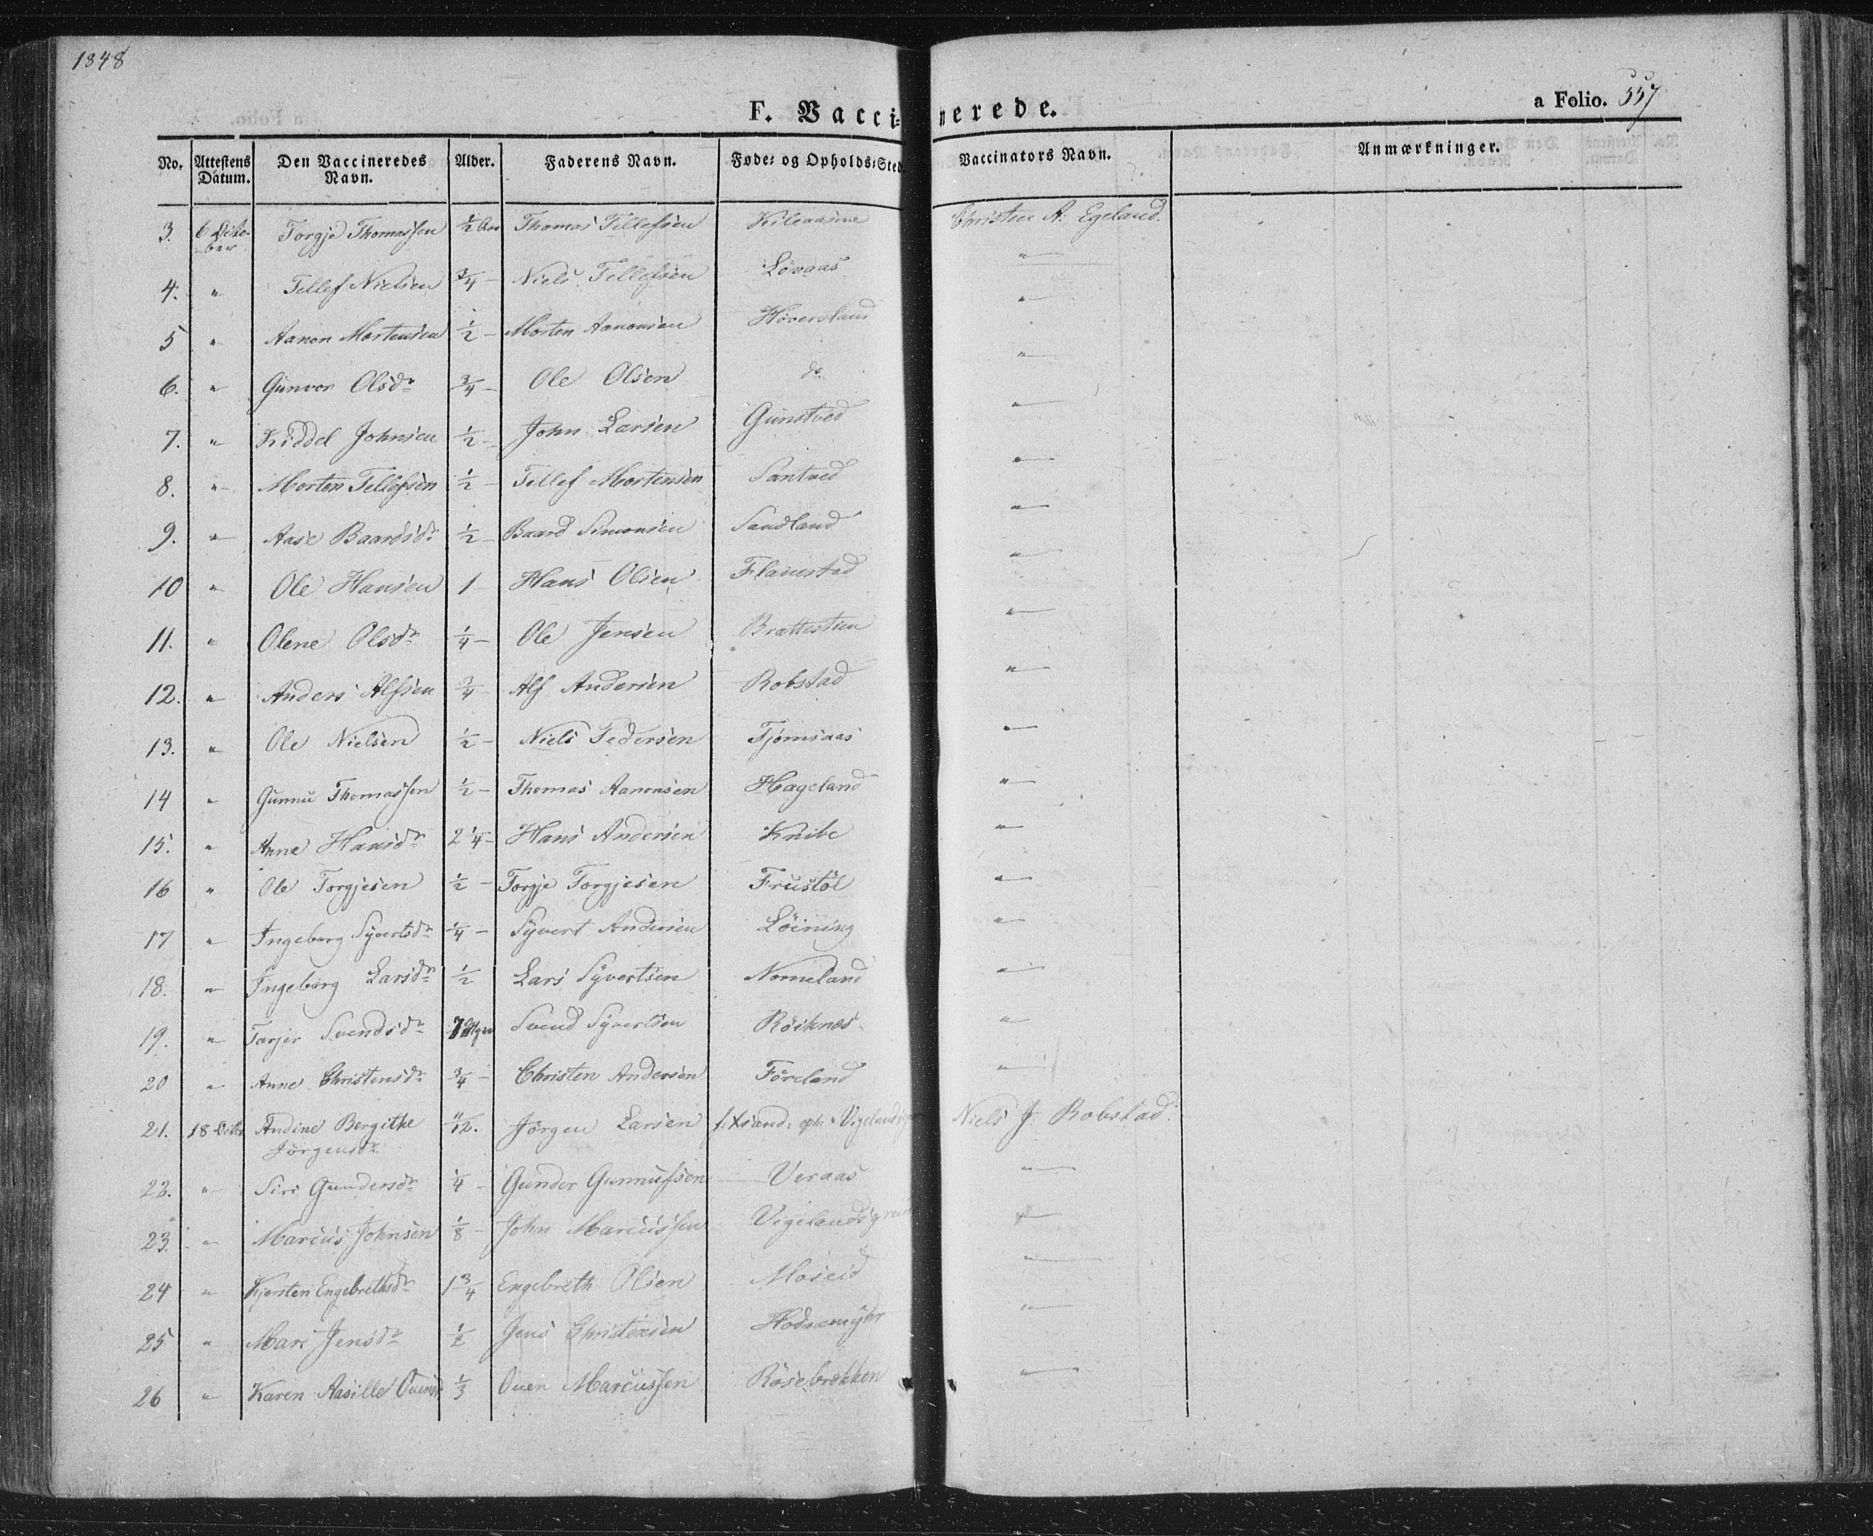 1848
F. Vaccinerede.
a Folio. 557
No. Attestens Datum. Den Vaccineredes Navn. Alder. Faderens Navn. Føde- og Opholds-Sted. Vaccinators Navn. Anmærkninger.
3. 6 Octo- Torgje Thomassen ½ Aar Thomas Tellefsen Kileaasine Christen A. Egeland.
ber
4. " Tellef Nielsen ¾ - Niels Tellefsen Løvaas "
5 " Aanon Mortensen ½ - Morten Aanonsen Høversland "
6. " Gunvor Olsdr ¾ - Ole Olsen do "
7. " Kiddel Johnsen ½ - John Larsen Gunstved "
8. " Morten Tellefsen ½ - Tellef Mortensen Santved "
9. " Aase Baardsdr ½ - Baard Simonsen Sandland "
10 " Ole Hansen 1 - Hans Olsen Flauestad "
11. " Olene Olsdr ¼ - Ole Jensen Brattestien "
12. " Anders Alfsen ¾ - Alf Andersen Robstad "
13. " Ole Nielsen ½ - Niels Pedersen Tjomsaas "
14 " Gunnu Thomassen ½ - Thomas Aanonsen Hageland "
15. " Anne Hansdr 2¼ - Hans Andersen Knibe "
16 " Ole Torgjesen ½ - Torgje Torgjesen Frustøl "
17 " Ingeborg Syvertsdr ¼ - Syvert Andersen Løining "
18. " Ingeborg Larsdr ½ Lars Syvertsen Nomeland "
19. " Torjer Svendsdr Svend Syvertsen Røiknes "
20 " Anne Christensdr ¾ - Christen Andersen Føreland "
21. 18 Octbr Andine Bergithe 11/12. Jörgen Larsen f: Xsand: oph: Vigelands Niels J. Robstad.
Jörgensdr
22. " Siri Gundersdr ¼ - Gunder Gunnufsen Veraas "
23. " Marcus Johnsen ⅛ - John Marcussen Vigelands "
24 " Kjersten Engebrethsdr 1¾ Engebreth Olsen Moseid "
25 " Mari Jensdr ½ Jens Christensen Hodnemyhr "
26 " Karen Aasille Ouensdr ⅓ Ouen Marcussen Røsebrekken "